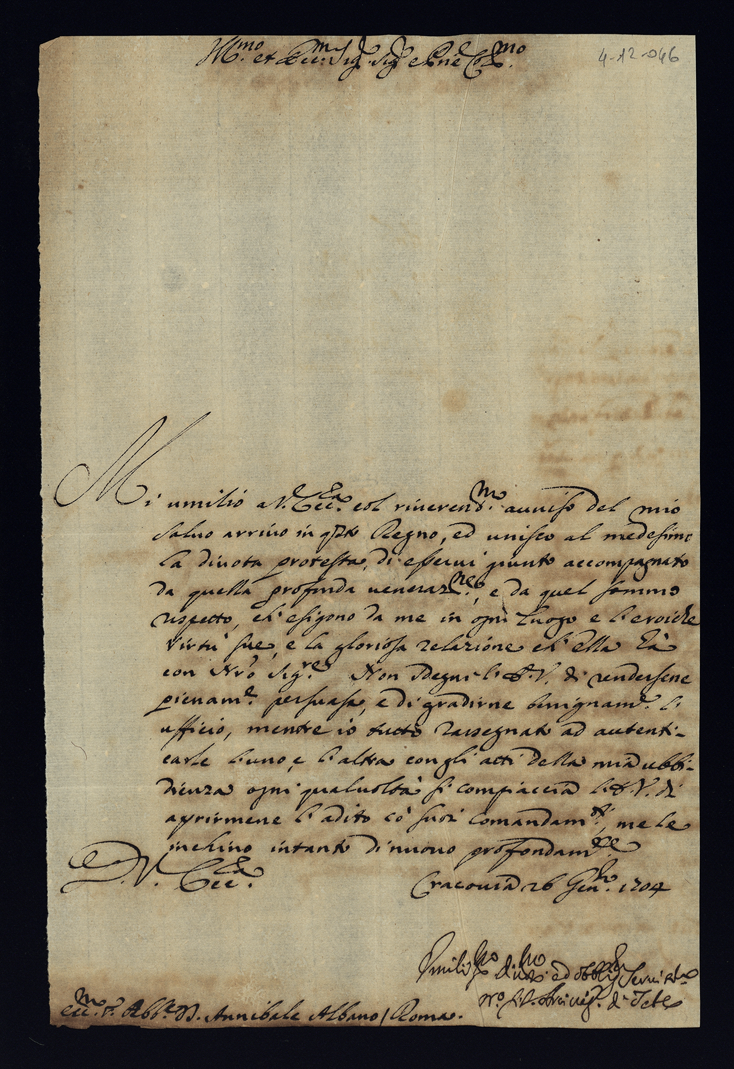 Ill.mo et Ecc.mo Sig.r Sig.r e P.ne Col.mo
4-12-046
Mi umilio a V. Ecc.za col riverend.mo avviso del mio
salvo arrivo in q.sto Regno, ed unisco al medesimo
la divota protesta, di esservi giunto accompagnato
da quella profonda veneraz.ne, e da quel sommo
rispetto, ch'esigono da me in ogni luogo e l'eroiche
virtù sue, e la gloriosa relazione ch'ella hà
con N.ro Sig.re. Non Degni l'E.V. di rendersene
pienam.te persuasa, e di gradirne benignam.te l'
ufficio, mentre io tutto rassegnato ad autenti-
carle l'uno, e l'altra con gli atti della mia ubbi-
dienza ogni qualvolta si compiacerà l'E.V. di
aprirmene l'adito cò suoi comandam.ti, me le
inchino intanto di nuovo profondam.te
D. V. Ecc.za Cracovia 26 Gen.ro 1704
Umiliss.mo div.mo ed obblig.mo Servit.re
Arcives.o di Tebe
Ecc.mo S.r Abb.e D. Annibale Albano / Roma.